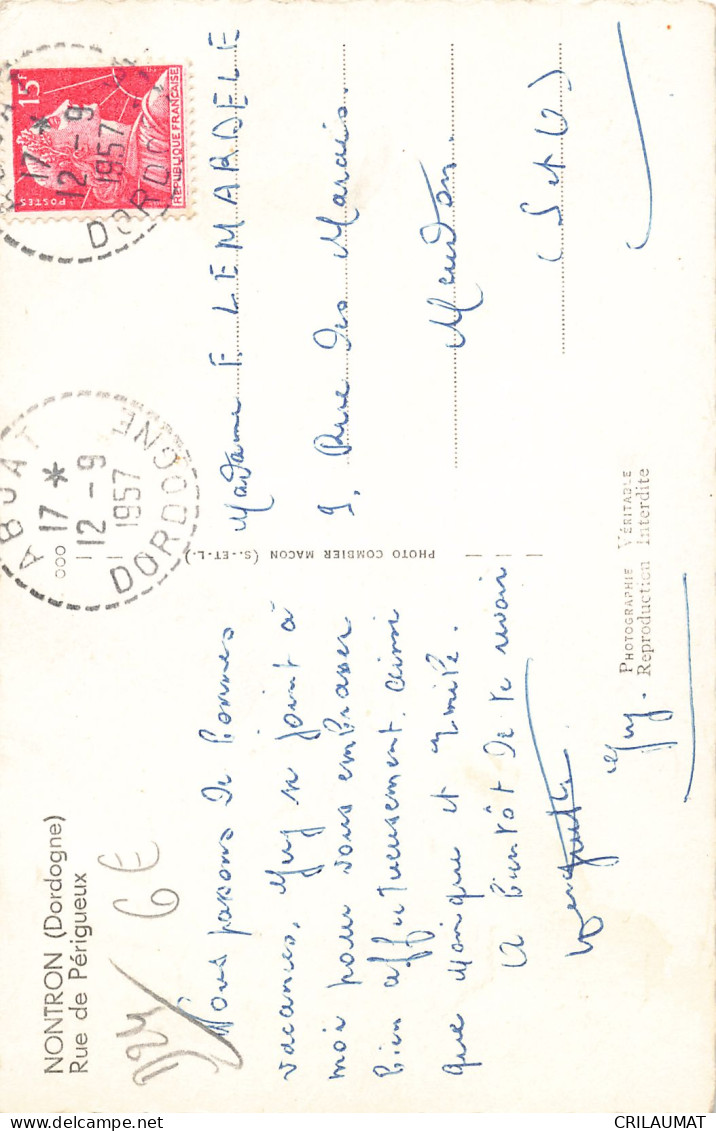 NONTRON (Dordogne)
Rue de Périgueux
D24/ 6€
Nous passons de bonnes
vacances, Guy se joint à
moi pour vous embrasser
bien affectueusement ainsi
que Monique et Emile.
A bientôt de te revoir
Guy.
PHOTO COMBIER MACON (S.-ET-L.)
ABJAT
17 *
12 - 9
1957
DORDOGNE
17 *
12 - 9
1957
DORDO
15F
POSTES
REPUBLIQUE FRANÇAISE
Madame E. LEMARDELE
9, Rue des Marais.
Meudon.
(S et O)
PHOTOGRAPHIE VÉRITABLE
Reproduction Interdite
CRILAUMAT